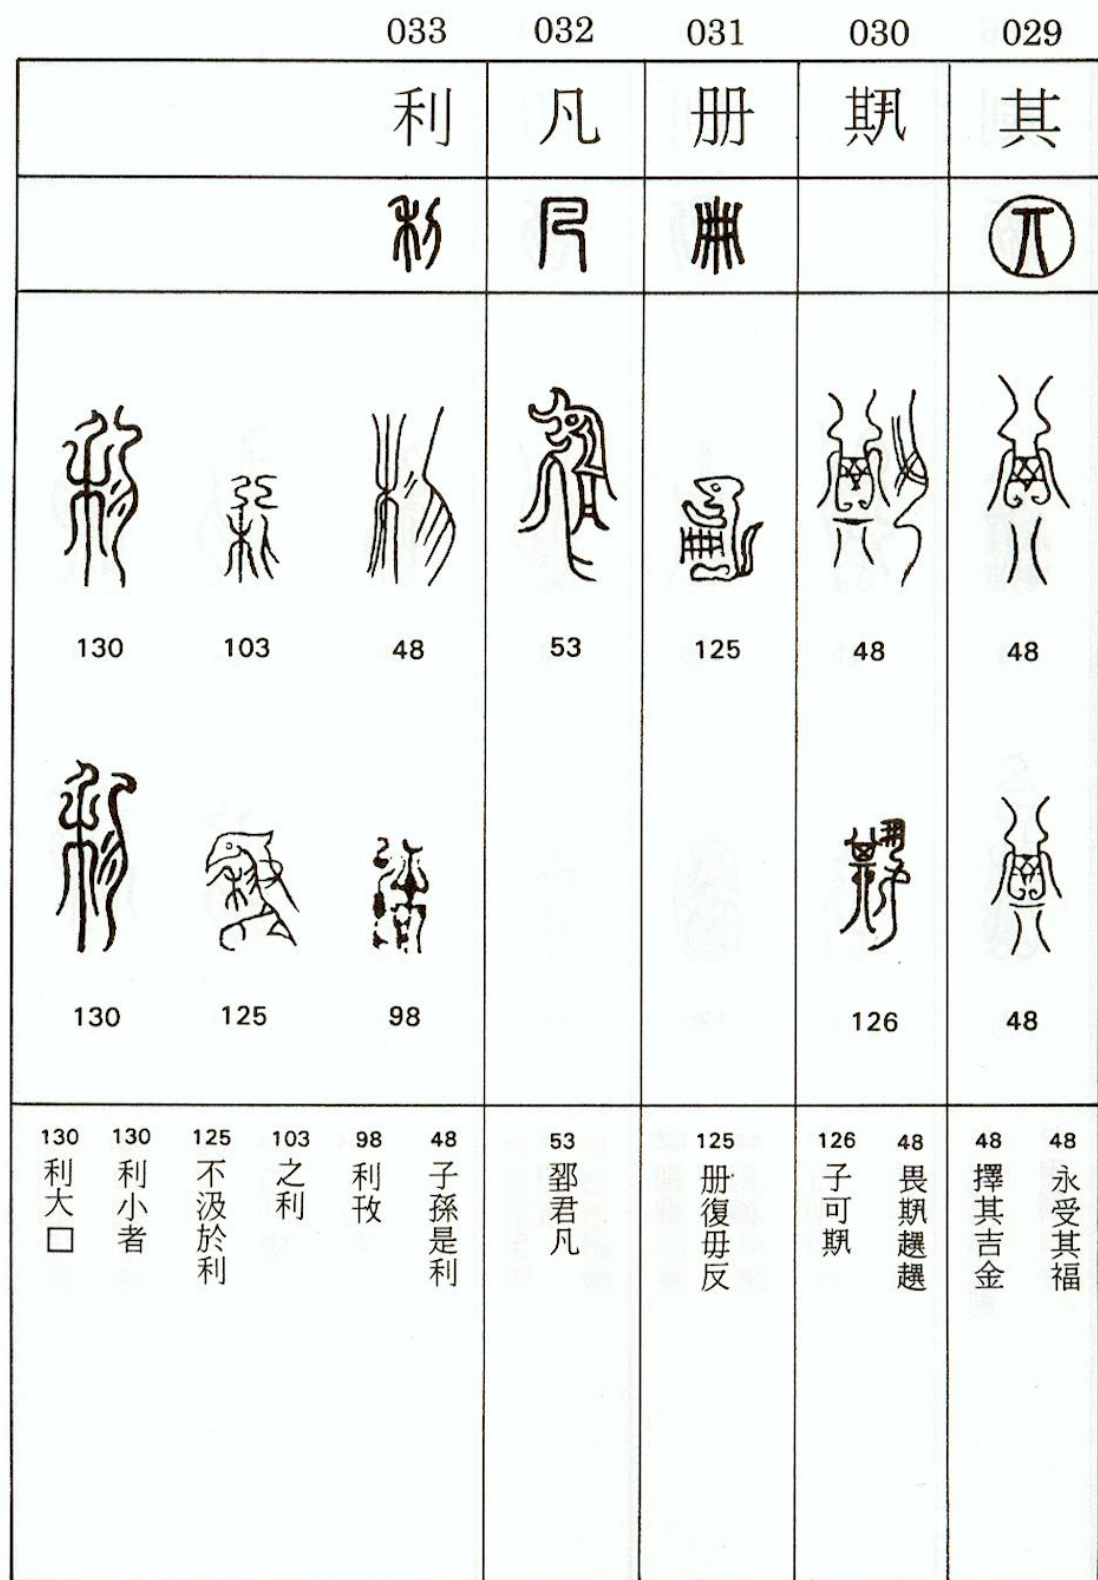 029
其
48
48
48 永受其福
48 擇其吉金
030
48
126
126 子可
031
册
125
125 册復毋反
032
凡
53
53 君凡
033
利
48
98
103
125
130
130
48 子孫是利
98 利攼
103 之利
125 不汲於利
130 利小者
130 利大□